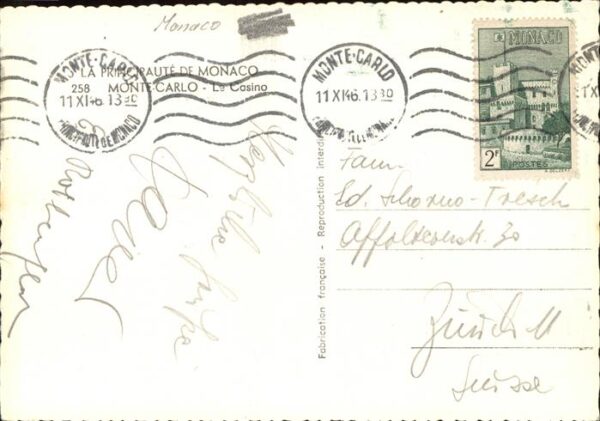 Monaco
LA PRINCIPAUTÉ DE MONACO
258 MONTE-CARLO - Le Casino
MONTE-CARLO
11 XI 46. 13 30
PRINCIPAUTÉ DE MONACO
MONTE-CARLO
11 XI 46. 13 30
MONACO
2F
POSTES
Herzliche Grüsse
Fabrication française - Reproduction interdite
Fam.
Ed. Schorno-Tresch
Affolternstr. 30
Zürich 11
Suisse